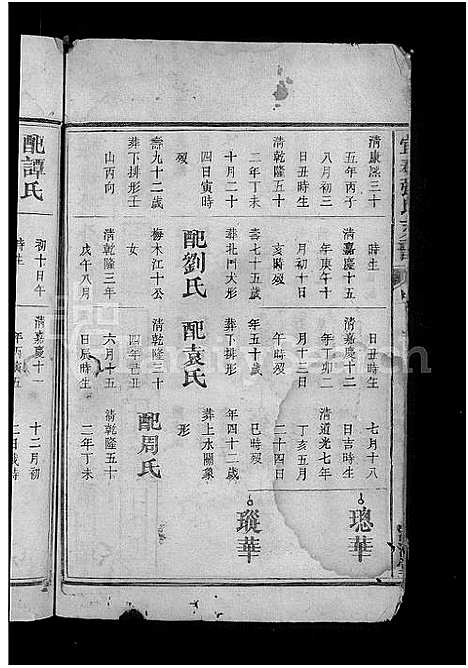 清康熙三十
五年丙子
八月初三
日丑時生
清乾隆五十
二年丁未
十月二十
四日寅時
歿
壽九十二歲
葬下排形壬
山丙向
時生
清嘉慶十五
年庚午十
月初十日
亥時歿
壽七十五歲
葬北門大形
配劉氏
梅木江十公
女
清乾隆三年
戊午八月
日丑時生
清嘉慶十二
年丁卯二
月十三日
午時歿
年五十
葬下排形
配袁氏
清乾隆三十
四年己丑
六月十五
日辰時生
七月十八
日吉時生
清道光七年
丁亥五月
二十四日
巳時歿
年四十二歲
葬上水關象
形
配周氏
清乾隆五十
二年丁未
璁華
瑽華
配譚氏
初十日午
時生
清嘉慶十一
年丙寅五
十二月初
FamilySearch